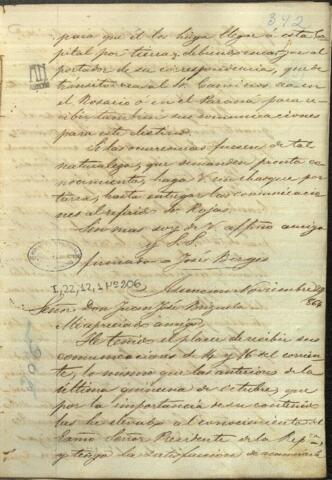 342
para que él los haga llegar á esta Ca-
pital por tierra; debiendo encargar al
portador de su correspondencia, que de
tránsito vea al Sr. Caminos ó sea en
el Rosario ó en el Paraná para re-
cibir tambien sus comunicaciones
para este destino.
Si las ocurrencias fuesen de tal
naturaleza, que demanden pronto co-
nocimiento, haga V. un chasque por
tierra, hasta entregar las comunicacio-
nes al referido Sr. Rojas.
Sin mas soy de V. affmo amigo
y S. S.
firmado = José Berges
I,22,12,1 Nº 206
Asuncion Noviembre
864
Señor Don Juan José Brizuela
Mi apreciado amigo:
He tenido el placer de recibir sus
comunicaciones de 14 y 16 del corrien-
te, lo mismo que las anteriores de la
última quincena de Octubre, que
por la importancia de su contenido
las he elevado al conocimiento del
Exmo Señor Presidente de la Repca
y tengo la satisfaccion de